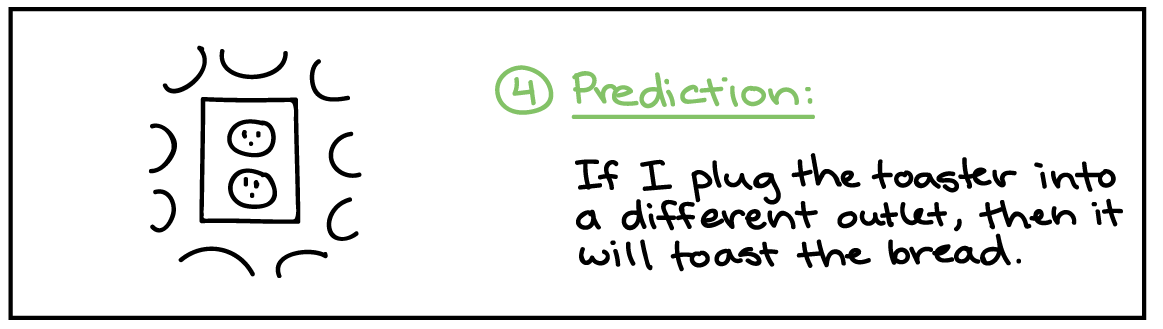 4 Prediction:
If I plug the toaster into
a different outlet, then it
will toast the bread.